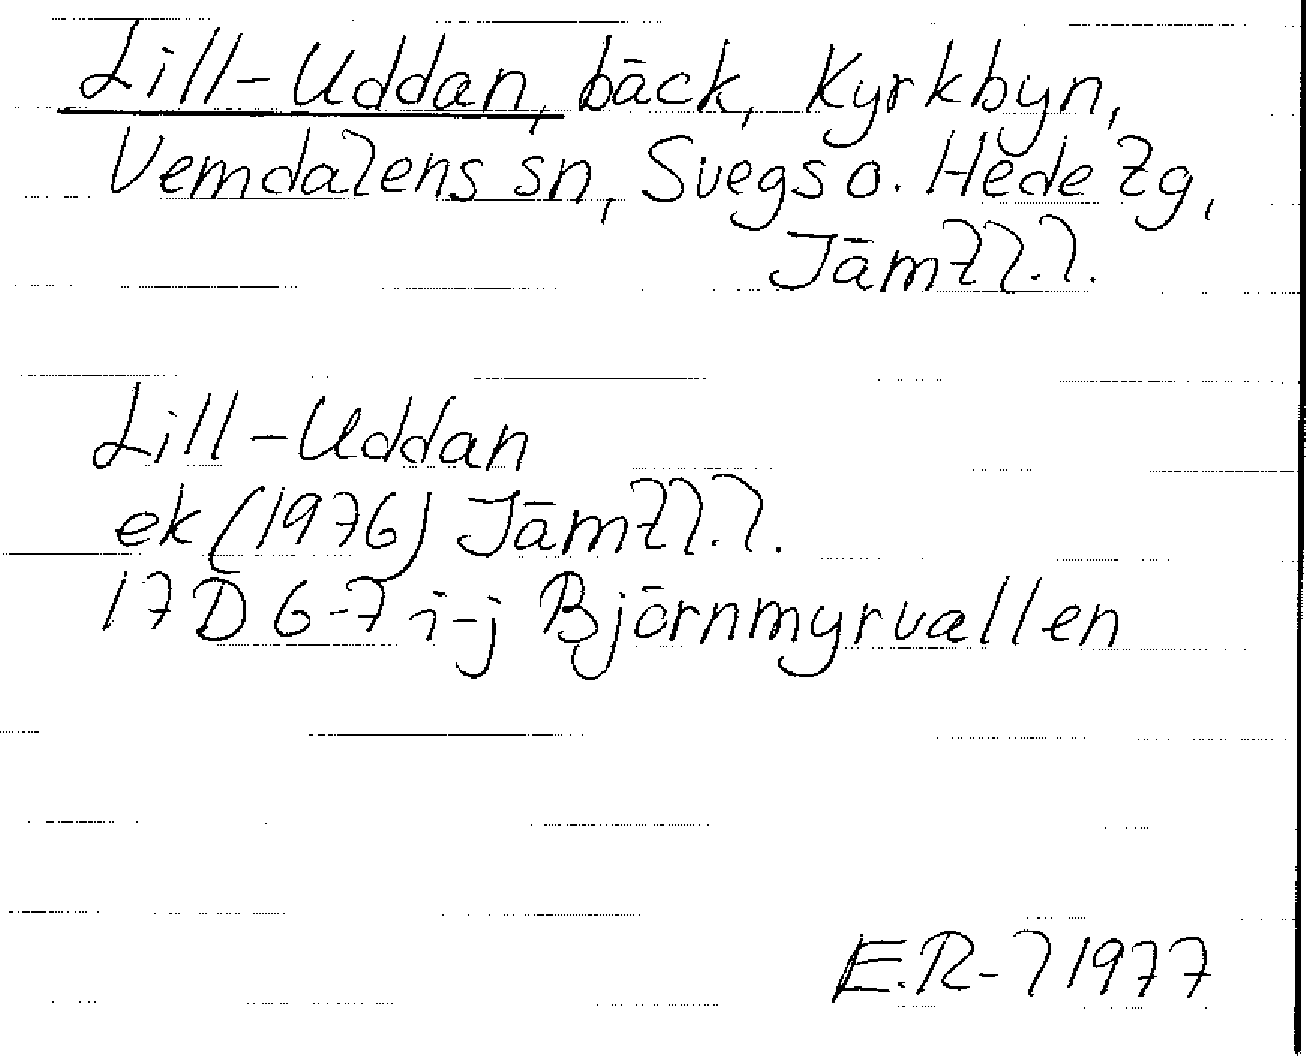 Lill-Uddan, bäck, Kyrkbyn,
Vemdalens sn, Svegs o. Hede tg,
Jämtl.l.
Lill-Uddan
ek (1976) Jämtl.l.
17D 6-7 i-j Björnmyrvallen
E.R-l 1977